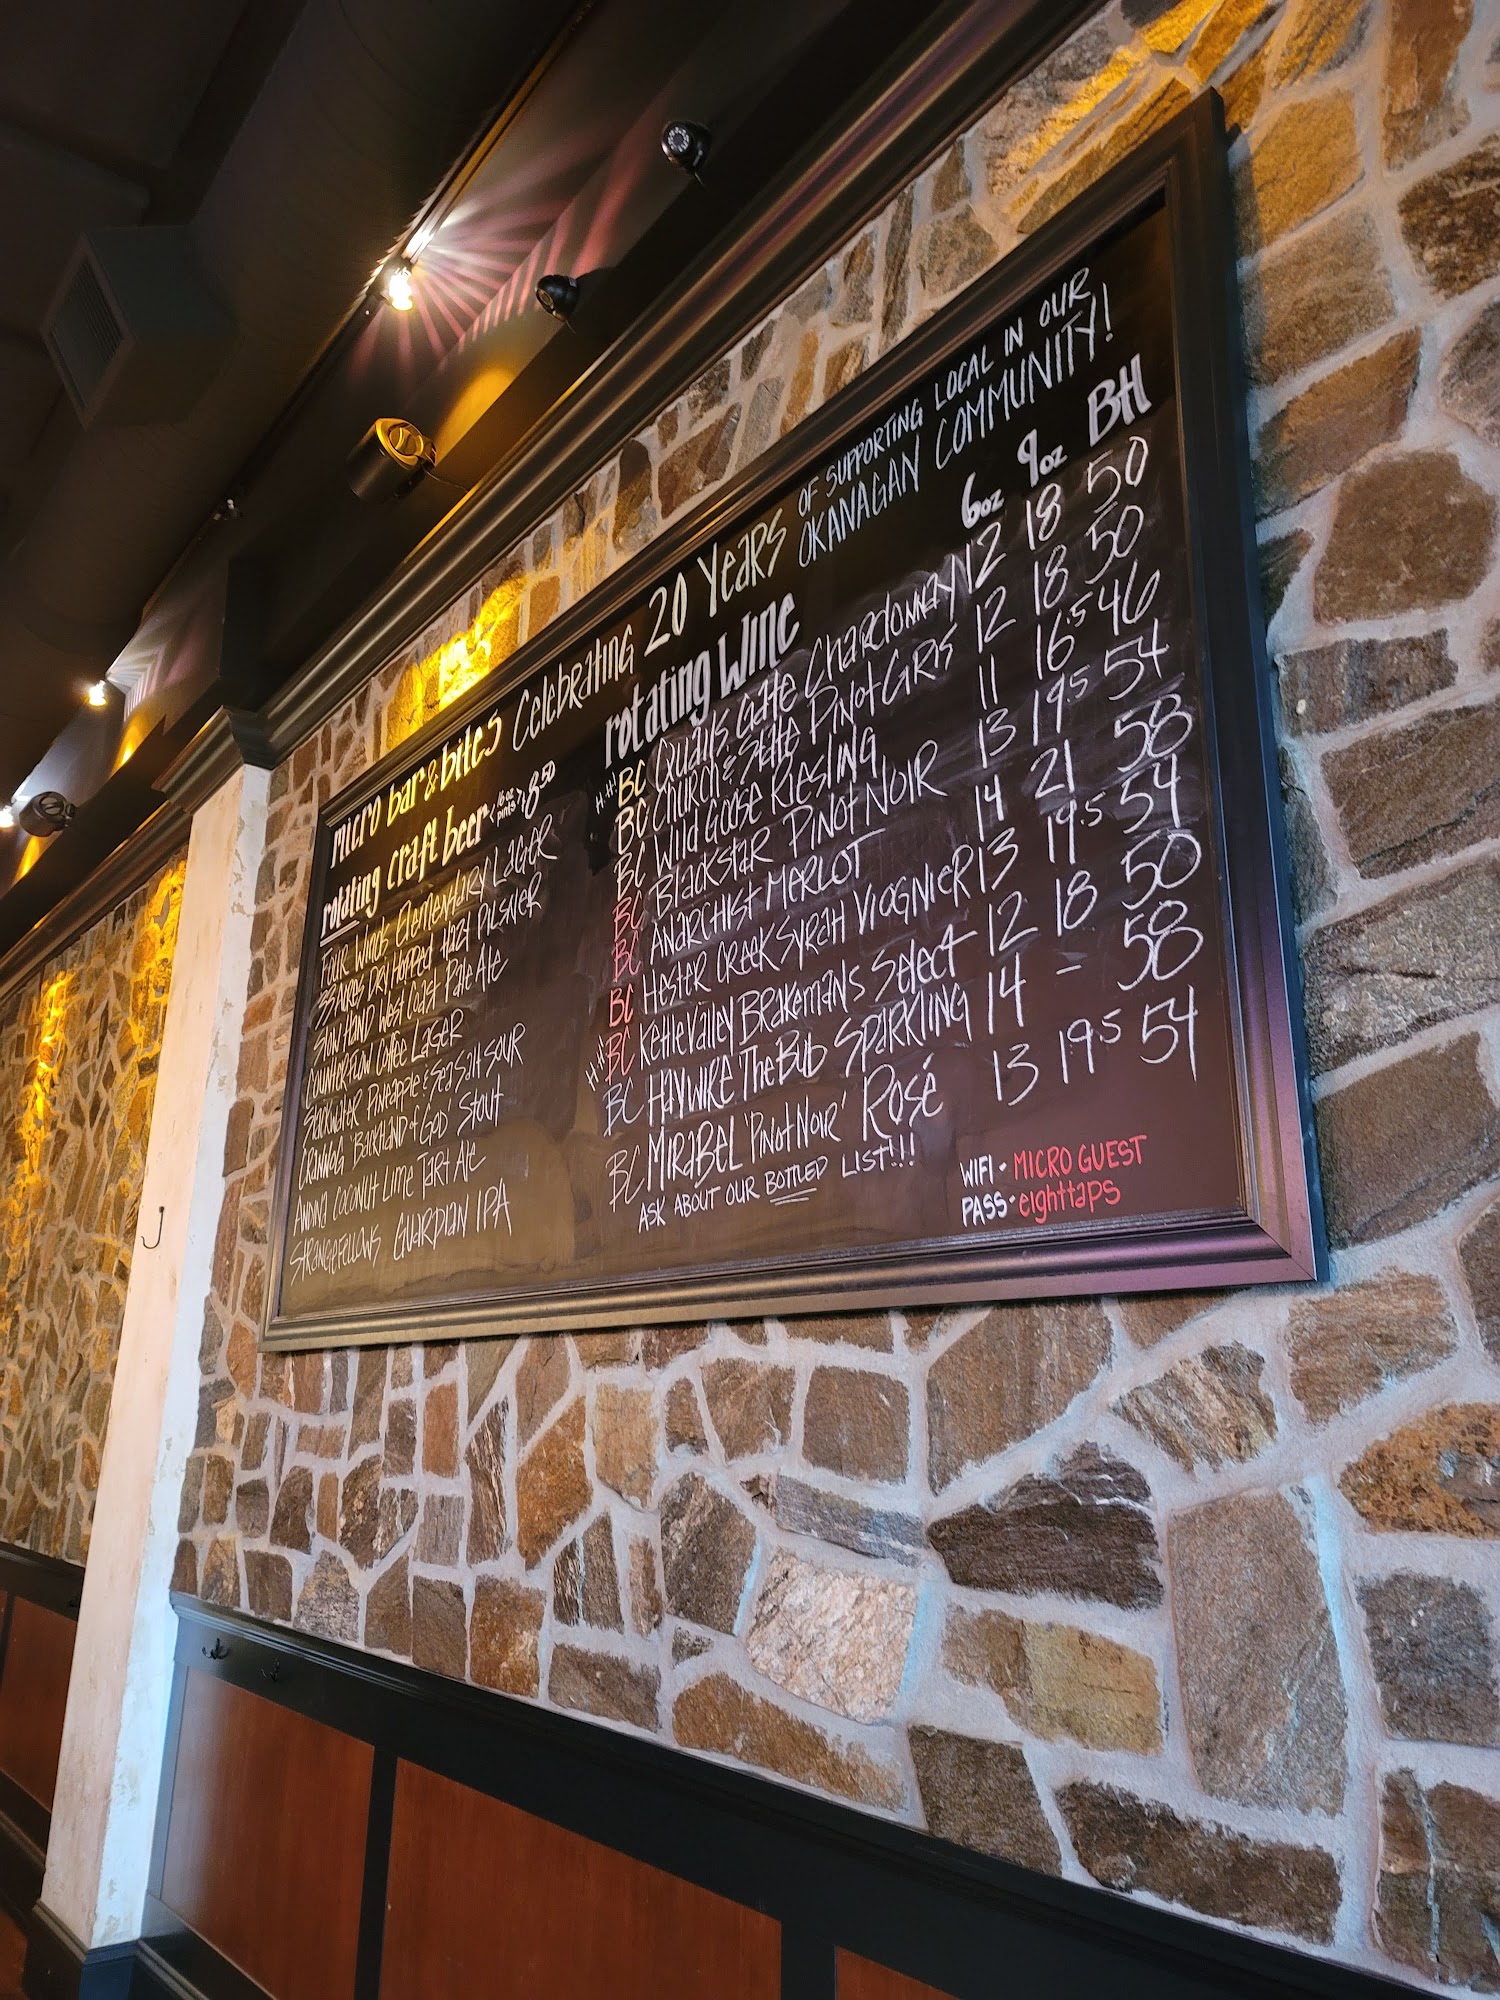 micro bar & bites Celebrating 20 Years OF SUPPORTING LOCAL IN OUR
OKANAGAN COMMUNITY!
rotating craft beer < 16oz pints > 8.50
Four Winds Elementary Lager
33 Acres Dry Hopped Hazi Pilsner
Slow Hand West Coast Pale Ale
Counterflow Coffee Lager
Slackwater Pineapple & Sea Salt Sour
Crannog 'Backhand of God' Stout
Coconut Lime Tart Ale
Strangefellows Guardian IPA
rotating Wine 6oz 9oz BH
H.H! BC Quails Gate Chardonnay 12 18 50
BC Church & State Pinot Gris 12 18 50
BC Wild Goose Riesling 11 16.5 46
BC Blackstar Pinot Noir 13 19.5 54
BC Anarchist Merlot 14 21 58
BC Hester Creek Syrah Viognier 13 19.5 54
H.H! BC Kettle Valley Brakeman's Select 12 18 50
BC Haywire 'The Bub' Sparkling 14 - 58
BC Mirabel 'Pinot Noir' Rosé 13 19.5 54
ASK ABOUT OUR BOTTLED LIST!!!
WIFI - MICRO GUEST
PASS - eighttaps